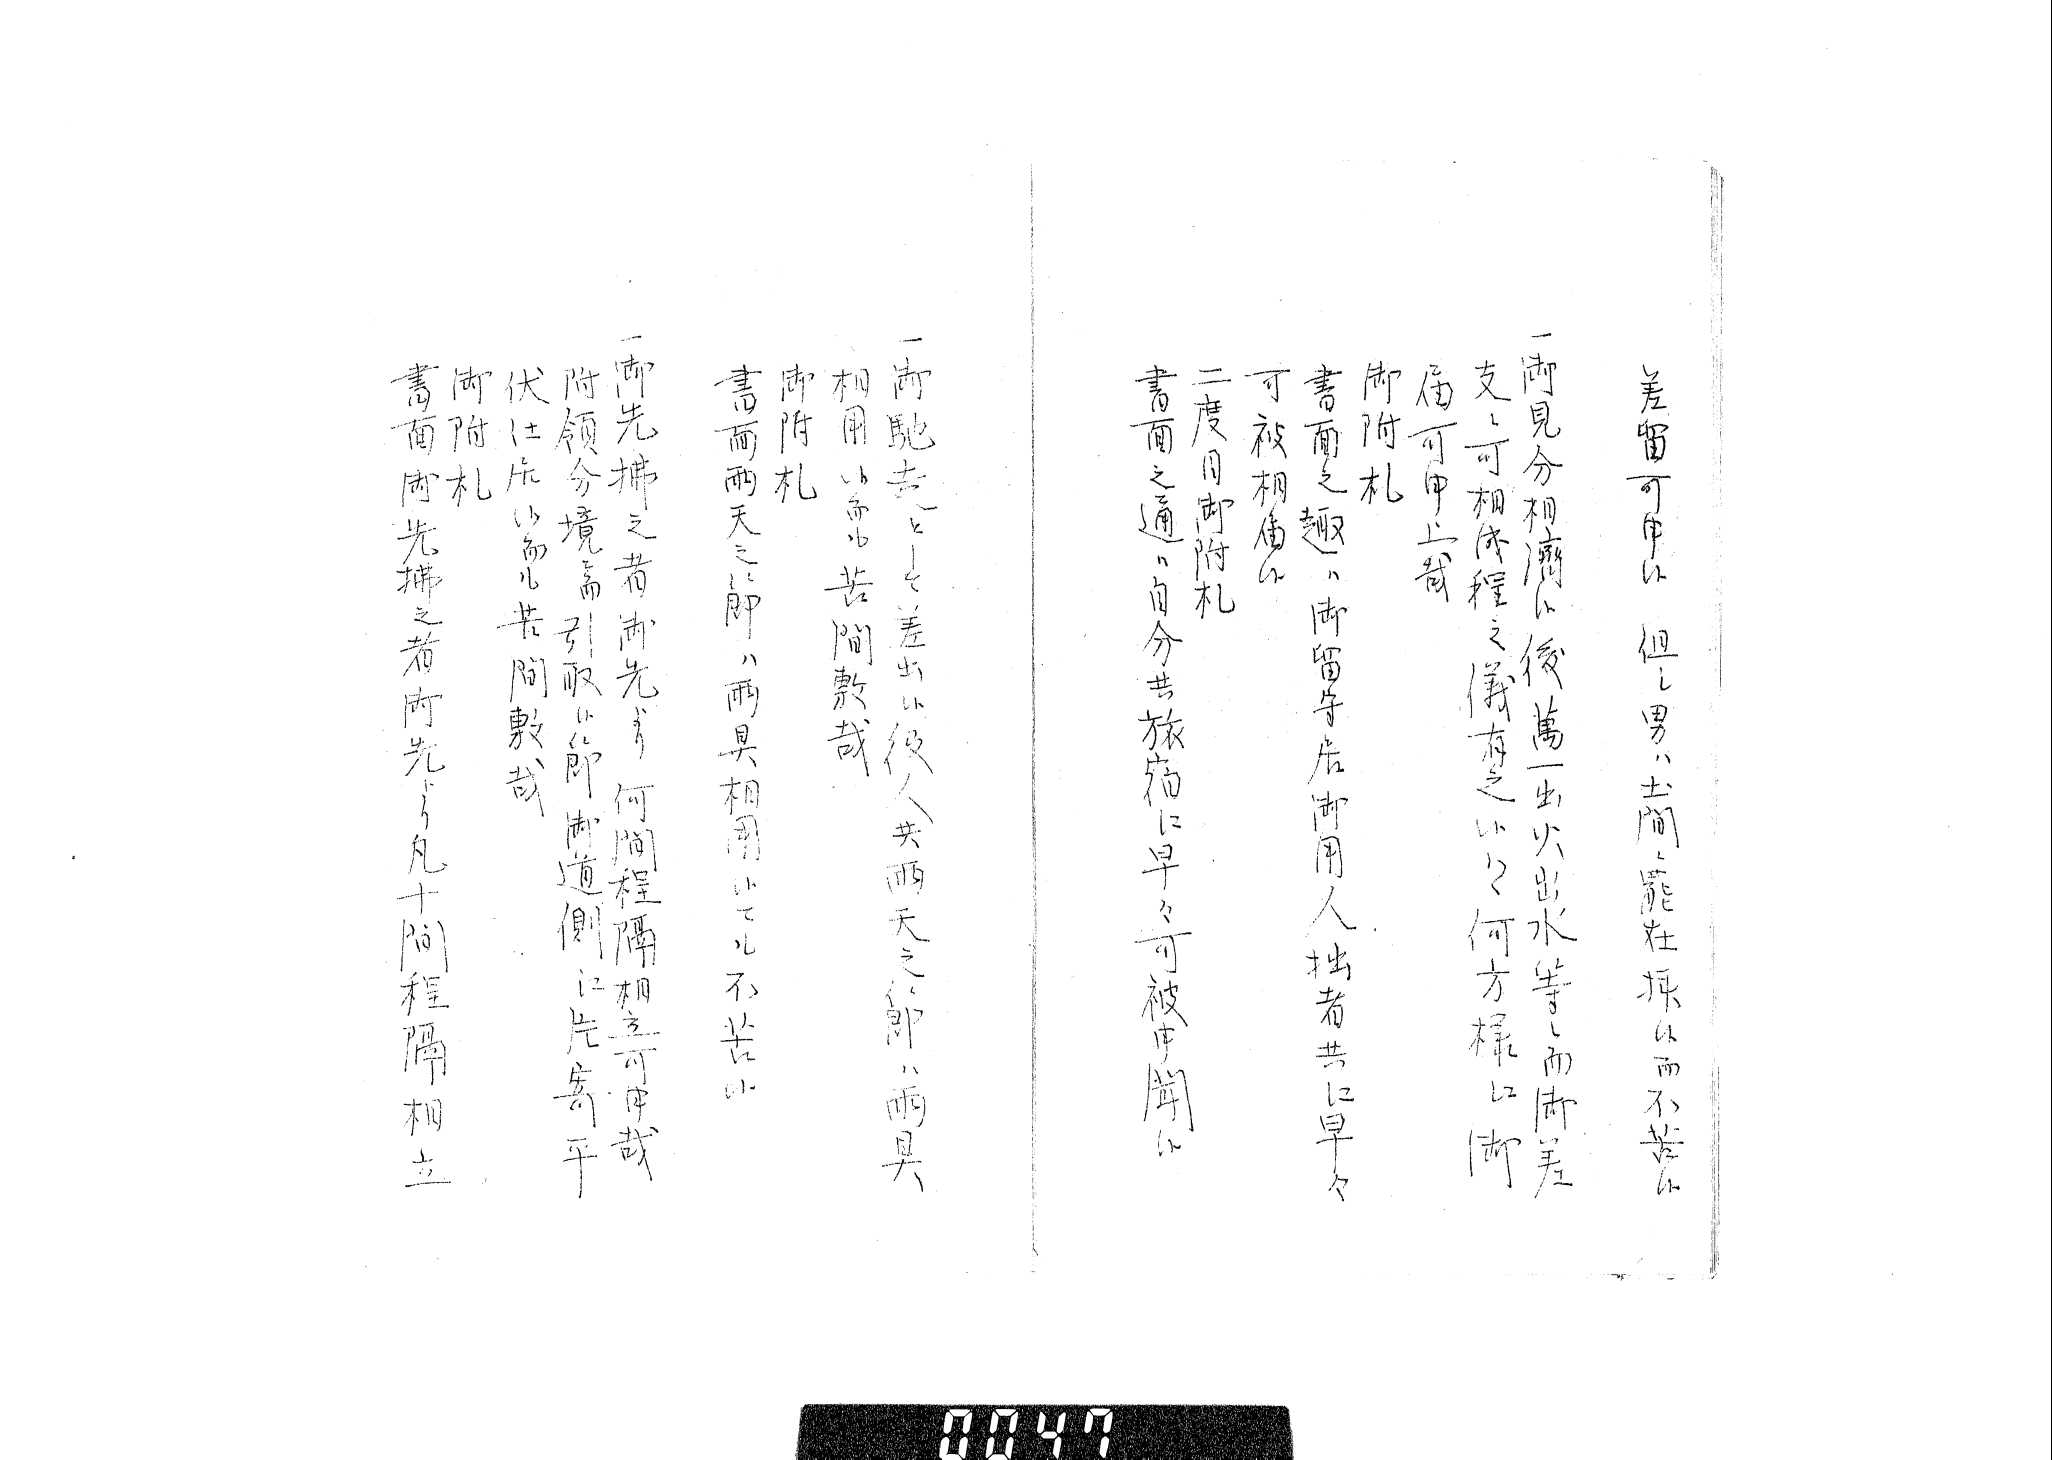 差留可申候 但し男ハ土間ニ罷在候而不苦候
一御見分相濟候後萬一出火出水等ニ而御差
支ニ可相成程之儀有之候ハヽ何方様江御
届可申上哉
御附札
書面之趣ハ御留守居御用人拙者共江早々
可被相届候
二度目御附札
書面之通ハ自分共旅宿江早々可被申聞候
一御馳走として差出候役人共雨天之節ハ雨具
相用候而も苦間敷哉
御附札
書面雨天之節ハ雨具相用候ても不苦候
一御先拂之者御先ゟ何間程隔相立可申哉
附領分境ニ而引取候節御道側江片寄平
伏仕居候而も苦間敷哉
御附札
書面御先拂之者御先より凡十間程隔相立
0047